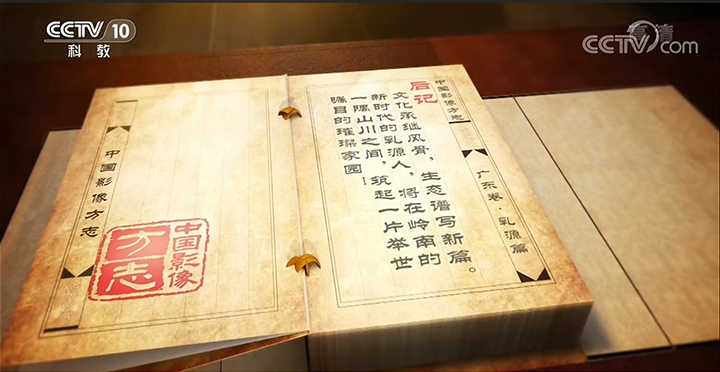 CCTV 10
科教
高清
CCTV.com
中国影像方志
广东卷·乳源篇
后记
文化承继风骨，生态谱写新篇。
新时代的乳源人，将在岭南的
一隅山川之间，筑起一片举世
瞩目的璀璨家园！
中国影像方志
中国影像
方志